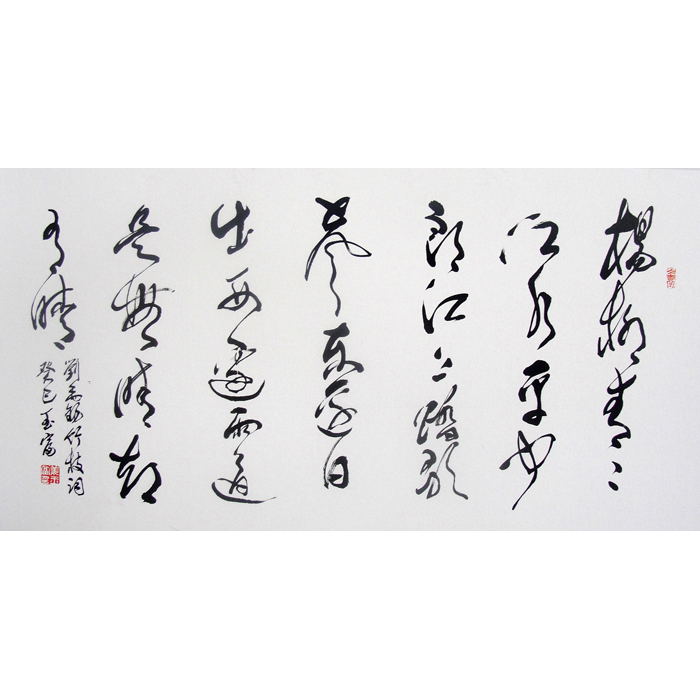 楊柳青青
江水平聞
郎江上踏歌
聲東邊日
出西邊雨道
是無晴却
有晴
劉禹錫竹枝詞
癸巳玉富